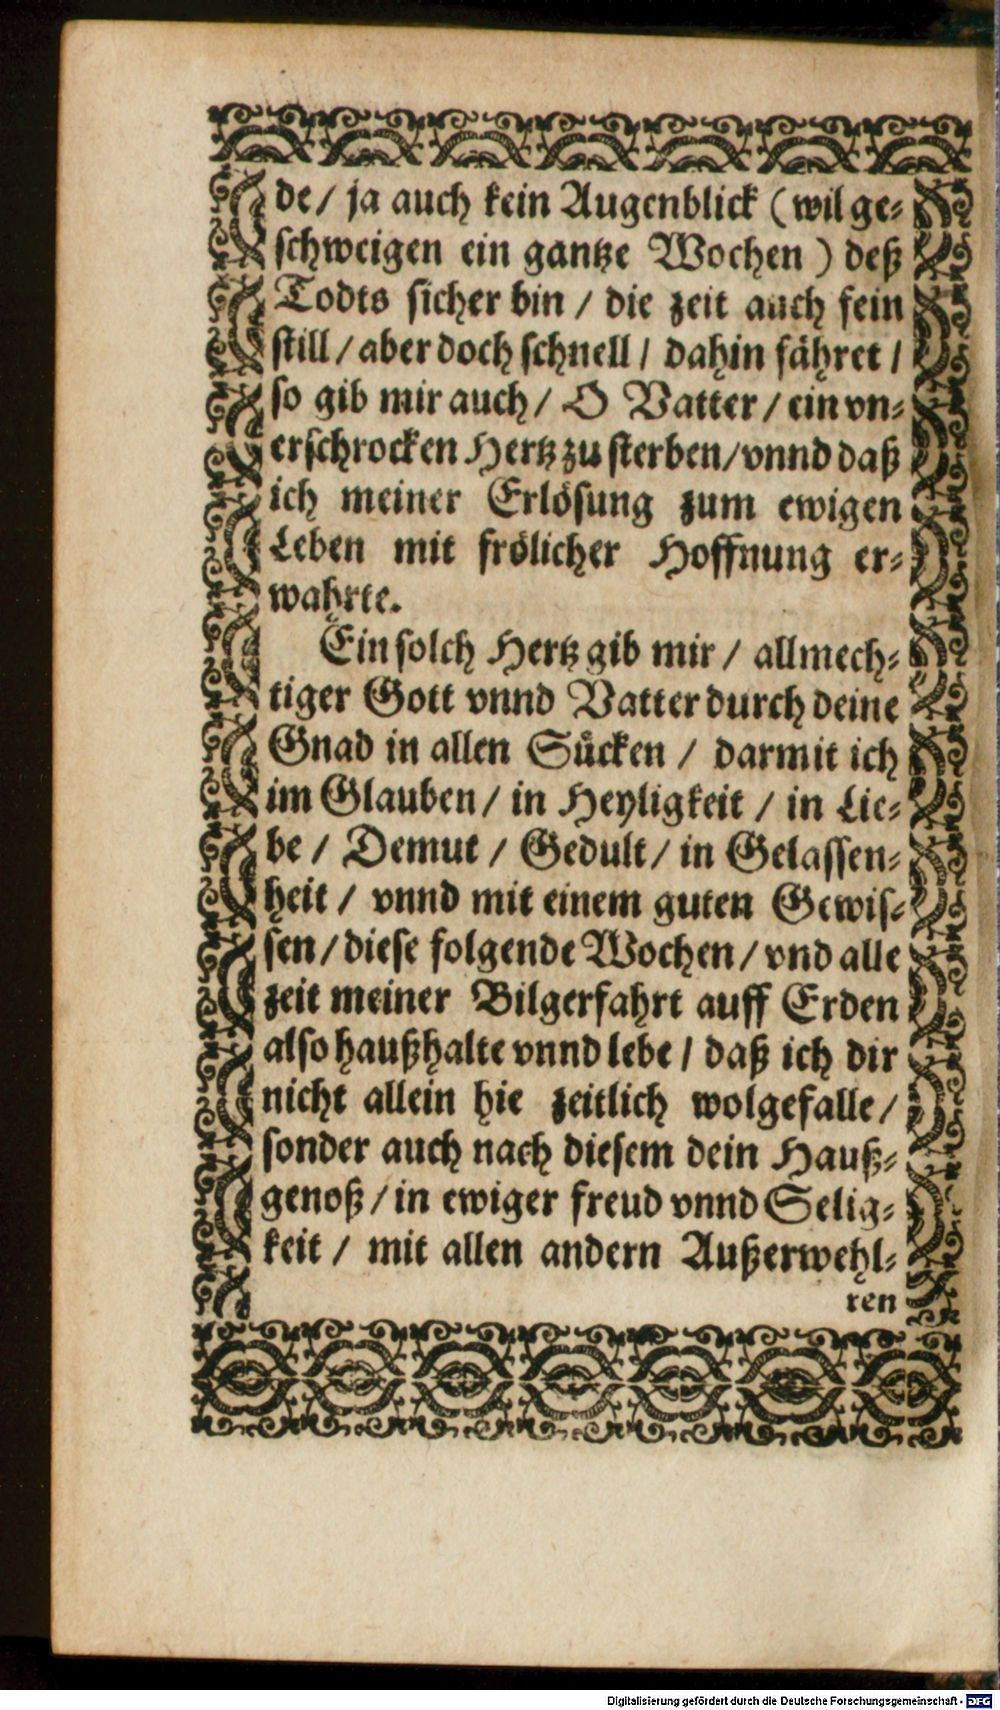 de/ ja auch kein Augenblick (wil ge-
schweigen ein gantze Wochen) deß
Todts sicher bin / die zeit auch fein
still / aber doch schnell / dahin fähret /
so gib mir auch / O Vatter / ein vn-
erschrocken Hertz zu sterben / vnnd daß
ich meiner Erlösung zum ewigen
Leben mit frölicher Hoffnung er-
wahrte.
Ein solch Hertz gib mir / allmech-
tiger Gott vnnd Vatter durch deine
Gnad in allen Sücken / darmit ich
im Glauben / in Heyligkeit / in Lie-
be / Demut / Gedult / in Gelassen-
heit / vnnd mit einem guten Gewis-
sen / diese folgende Wochen / vnd alle
zeit meiner Bilgerfahrt auff Erden
also haußhalte vnnd lebe / daß ich dir
nicht allein hie zeitlich wolgefalle /
sonder auch nach diesem dein Hauß-
genoß / in ewiger freud vnnd Selig-
keit / mit allen andern Außerwehl-
ren
Digitalisierung gefördert durch die Deutsche Forschungsgemeinschaft - DFG